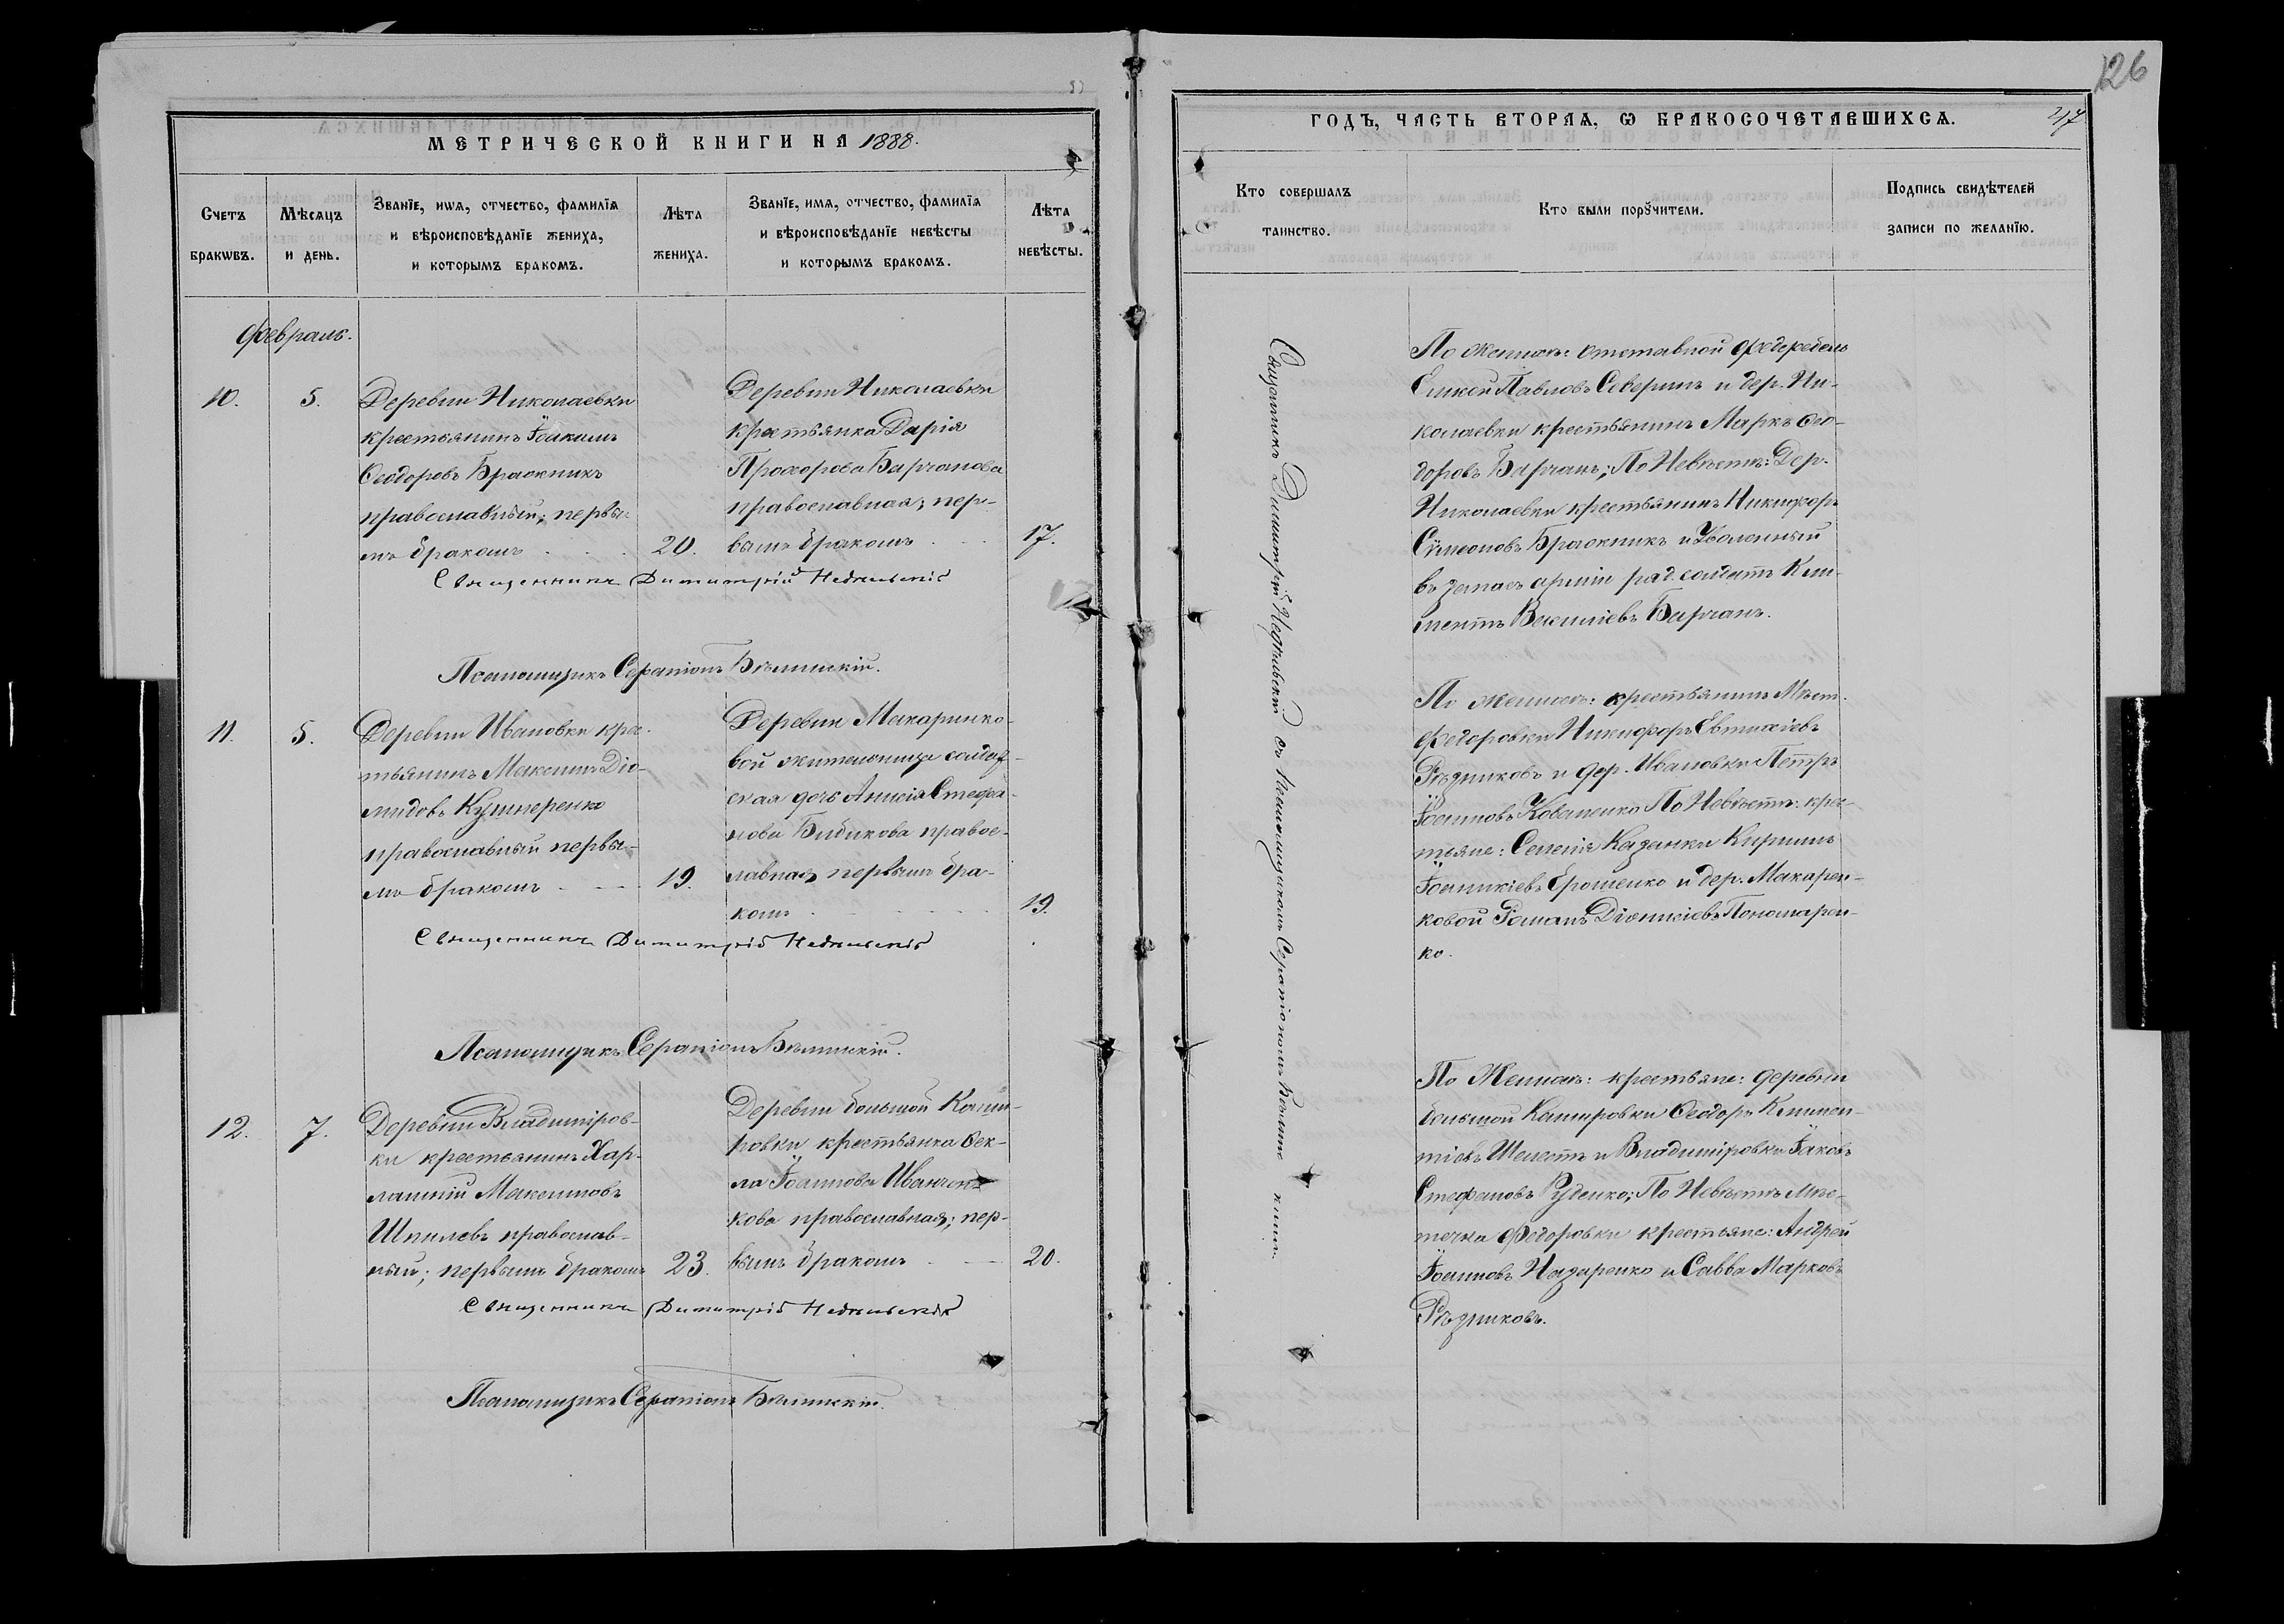 126
МЕТРИЧЕСКОЙ КНИГИ НА 1888.
Счетъ браковъ.
Мѣсяцъ и день.
Званіе, имя, отчество, фамилія
и вѣроисповѣданіе жениха,
и которымъ бракомъ.
Лѣта
жениха.
Званіе, имя, отчество, фамилія
и вѣроисповѣданіе невѣсты
и которымъ бракомъ.
Лѣта
невѣсты.
Февраль.
10.
5.
Деревни Николаевки
крестьянинъ Іоакимъ
Ѳеодоровъ Бражникъ
православный; первы-
мъ бракомъ
20.
Деревни Николаевки
крестьянка Дарія
Прохорова Барчанова
православная; пер-
вымъ бракомъ
17.
Священникъ Димитрій Недѣльскій
Псаломщикъ Серапіонъ Бѣлинскій.
11.
5.
Деревни Ивановки крес-
тьянинъ Максимъ Діо-
мидовъ Кушнеренко
православный первы-
мъ бракомъ
19.
Деревни Макаринко-
вой жительница солдат-
ская дочь Анисія Стефа-
нова Бибикова правос-
лавная первымъ бра-
комъ
19.
Священникъ Димитрій Недѣльскій
Псаломщикъ Серапіонъ Бѣлинскій.
12.
7.
Деревни Владиміров-
ки крестьянинъ Хар-
лампій Максимовъ
Шпилевъ православ-
ный; первымъ бракомъ
23.
Деревни большой Каши-
ровки крестьянка Ѳек-
ла Іоаннова Иванчен-
кова православная; пер-
вымъ бракомъ
20.
Священникъ Димитрій Недѣльскій
Псаломщикъ Серапіонъ Бѣлинскій.
ГОДЪ, ЧАСТЬ ВТОРАЯ, Ѡ БРАКОСОЧЕТАВШИХСЯ.
217
Кто совершалъ
таинство.
Кто были порꙋчители.
Подпись свидѣтелей
записи по желанію.
Священникъ Димитрій Недѣльскій съ Псаломщикомъ Серапіономъ Бѣлинскимъ
По женихѣ: отставной фельдфебель
Павловъ Северинъ и дер. Ни-
колаевки крестьянинъ Маркъ Ѳео-
доровъ Барчанъ; По Невѣстѣ: Дер.
Николаевки крестьянинъ Никифоръ
Сѵмеоновъ Бражникъ и Уволенный
въ запасъ арміи ряд. солдатъ Кли-
ментъ Василіевъ Барчанъ.
По женихѣ: крестьянинъ Мѣст.
Федоровки Никифоръ Евтихіевъ
Рѣзниковъ и дер. Ивановки Петръ
Іоанновъ Коваленко По Невѣстѣ: крес-
тьяне: Селенія Казанки Кириллъ
Іоанникіевъ Ерошенко и дер. Макарен-
ковой Романъ Діонисіевъ Пономарен-
ко.
По Женихѣ: крестьяне: деревни
большой Кашировки Ѳеодоръ Климен-
тіевъ Шелестъ и Владиміровки Іаковъ
Стефановъ Руденко; По Невѣстѣ мѣс-
течка Федоровки крестьяне: Андрей
Іоанновъ Назаренко и Савва Марковъ
Рѣзниковъ.